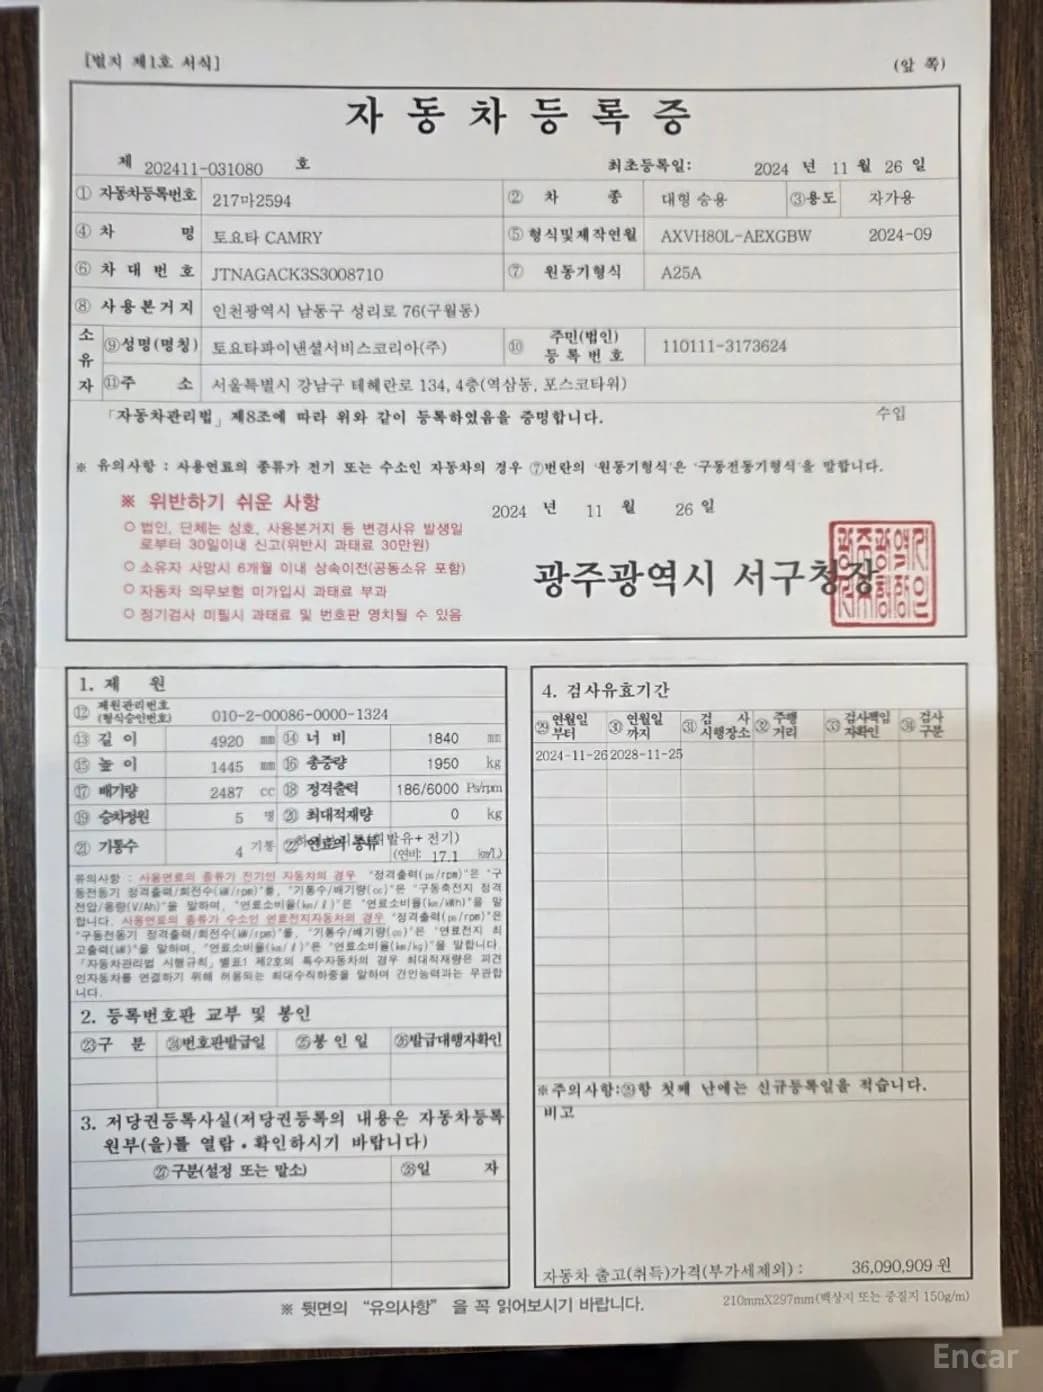 [별지 제1호 서식]
(앞 쪽)
자 동 차 등 록 증
제 202411-031080 호 최초등록일: 2024 년 11 월 26 일
① 자동차등록번호 217마2594 ② 차 종 대형 승용 ③용도 자가용
④ 차 명 토요타 CAMRY ⑤ 형식및제작연월 AXVH80L-AEXGBW 2024-09
⑥ 차 대 번 호 JTNAGACK3S3008710 ⑦ 원동기형식 A25A
⑧ 사 용 본 거 지 인천광역시 남동구 성리로 76(구월동)
소유자 ⑨성명(명칭) 토요타파이낸셜서비스코리아(주) ⑩ 주민(법인)등록번호 110111-3173624
⑪주 소 서울특별시 강남구 테헤란로 134, 4층(역삼동, 포스코타워)
「자동차관리법」 제8조에 따라 위와 같이 등록하였음을 증명합니다. 수입
※ 유의사항 : 사용연료의 종류가 전기 또는 수소인 자동차의 경우 ⑦번란의 '원동기형식'은 '구동전동기형식'을 말합니다.
※ 위반하기 쉬운 사항
2024 년 11 월 26 일
○ 법인, 단체는 상호, 사용본거지 등 변경사유 발생일
로부터 30일이내 신고(위반시 과태료 30만원)
○ 소유자 사망시 6개월 이내 상속이전(공동소유 포함)
○ 자동차 의무보험 미가입시 과태료 부과
○ 정기검사 미필시 과태료 및 번호판 영치될 수 있음
광주광역시 서구청장
1. 제 원
⑫ 제원관리번호(형식승인번호) 010-2-00086-0000-1324
⑬ 길 이 4920 mm ⑭ 너 비 1840 mm
⑮ 높 이 1445 mm ⑯ 총중량 1950 kg
⑰ 배기량 2487 cc ⑱ 정격출력 186/6000 Ps/rpm
⑲ 승차정원 5 명 ⑳ 최대적재량 0 kg
㉑ 기통수 4 기통 ㉒ 연료의 종류 (휘발유+ 전기)
(연비: 17.1 km/L)
유의사항 : 사용연료의 종류가 전기인 자동차의 경우 "정격출력(ps/rpm)"은 "구
동전동기 정격출력/회전수(kW/rpm)"를, "기통수/배기량(cc)"은 "구동축전지 정격
전압/용량(V/Ah)"을 말하며, "연료소비율(km/ℓ)"은 "연료소비율(km/kWh)"을 말
합니다. 사용연료의 종류가 수소인 연료전지자동차의 경우 "정격출력(ps/rpm)"은
"구동전동기 정격출력/회전수(kW/rpm)"를, "기통수/배기량(cc)"은 "연료전지 최
고출력(kW)"을 말하며, "연료소비율(km/ℓ)"은 "연료소비율(km/kg)"을 말합니다.
「자동차관리법 시행규칙」 별표1 제2호의 특수자동차의 경우 최대적재량은 피견
인자동차를 연결하기 위해 허용되는 최대수직하중을 말하며 견인능력과는 무관합
니다.
2. 등록번호판 교부 및 봉인
㉓구 분 ㉔번호판발급일 ㉕봉 인 일 ㉖발급대행자확인
3. 저당권등록사실(저당권등록의 내용은 자동차등록
원부(을)를 열람ㆍ확인하시기 바랍니다)
㉗구분(설정 또는 말소) ㉘일 자
4. 검사유효기간
㉙ 연월일부터 ㉚ 연월일까지 ㉛ 검 사 시행장소 ㉜ 주행거리 ㉝ 검사책임자확인 ㉞ 검사구분
2024-11-26 2028-11-25
※주의사항:㉙항 첫째 난에는 신규등록일을 적습니다.
비고
자동차 출고(취득)가격(부가세제외) : 36,090,909 원
※ 뒷면의 "유의사항" 을 꼭 읽어보시기 바랍니다.
210mmX297mm(백상지 또는 중질지 150g/m)
Encar